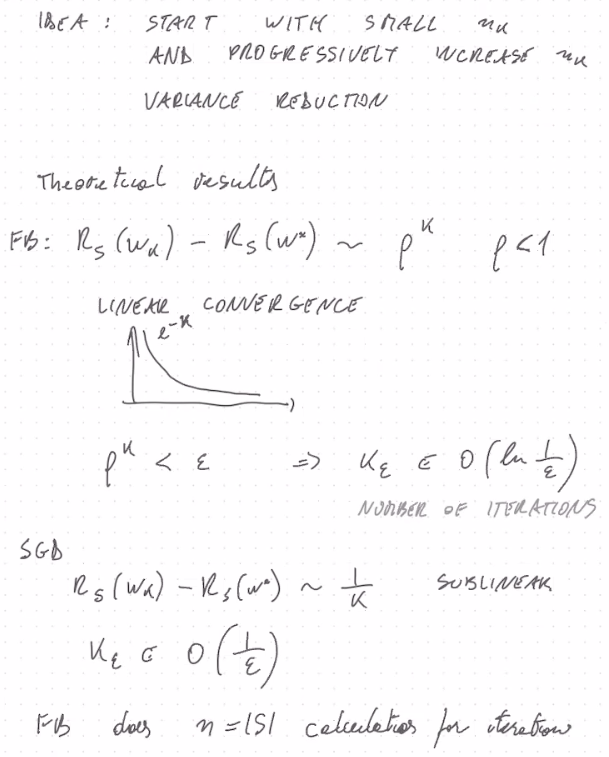 IDEA : START WITH SMALL n_k
AND PROGRESSIVELY INCREASE n_k
VARIANCE REDUCTION
Theoretical results
FB: R_S(w_k) - R_S(w*) ~ ρ^k ρ<1
LINEAR CONVERGENCE
e^-k
ρ^k < ε => k_ε ∈ O(ln 1/ε)
NUMBER OF ITERATIONS
SGD
R_S(w_k) - R_S(w*) ~ 1/k SUBLINEAR
k_ε ∈ O(1/ε)
FB does n = |S| calculations for iteration